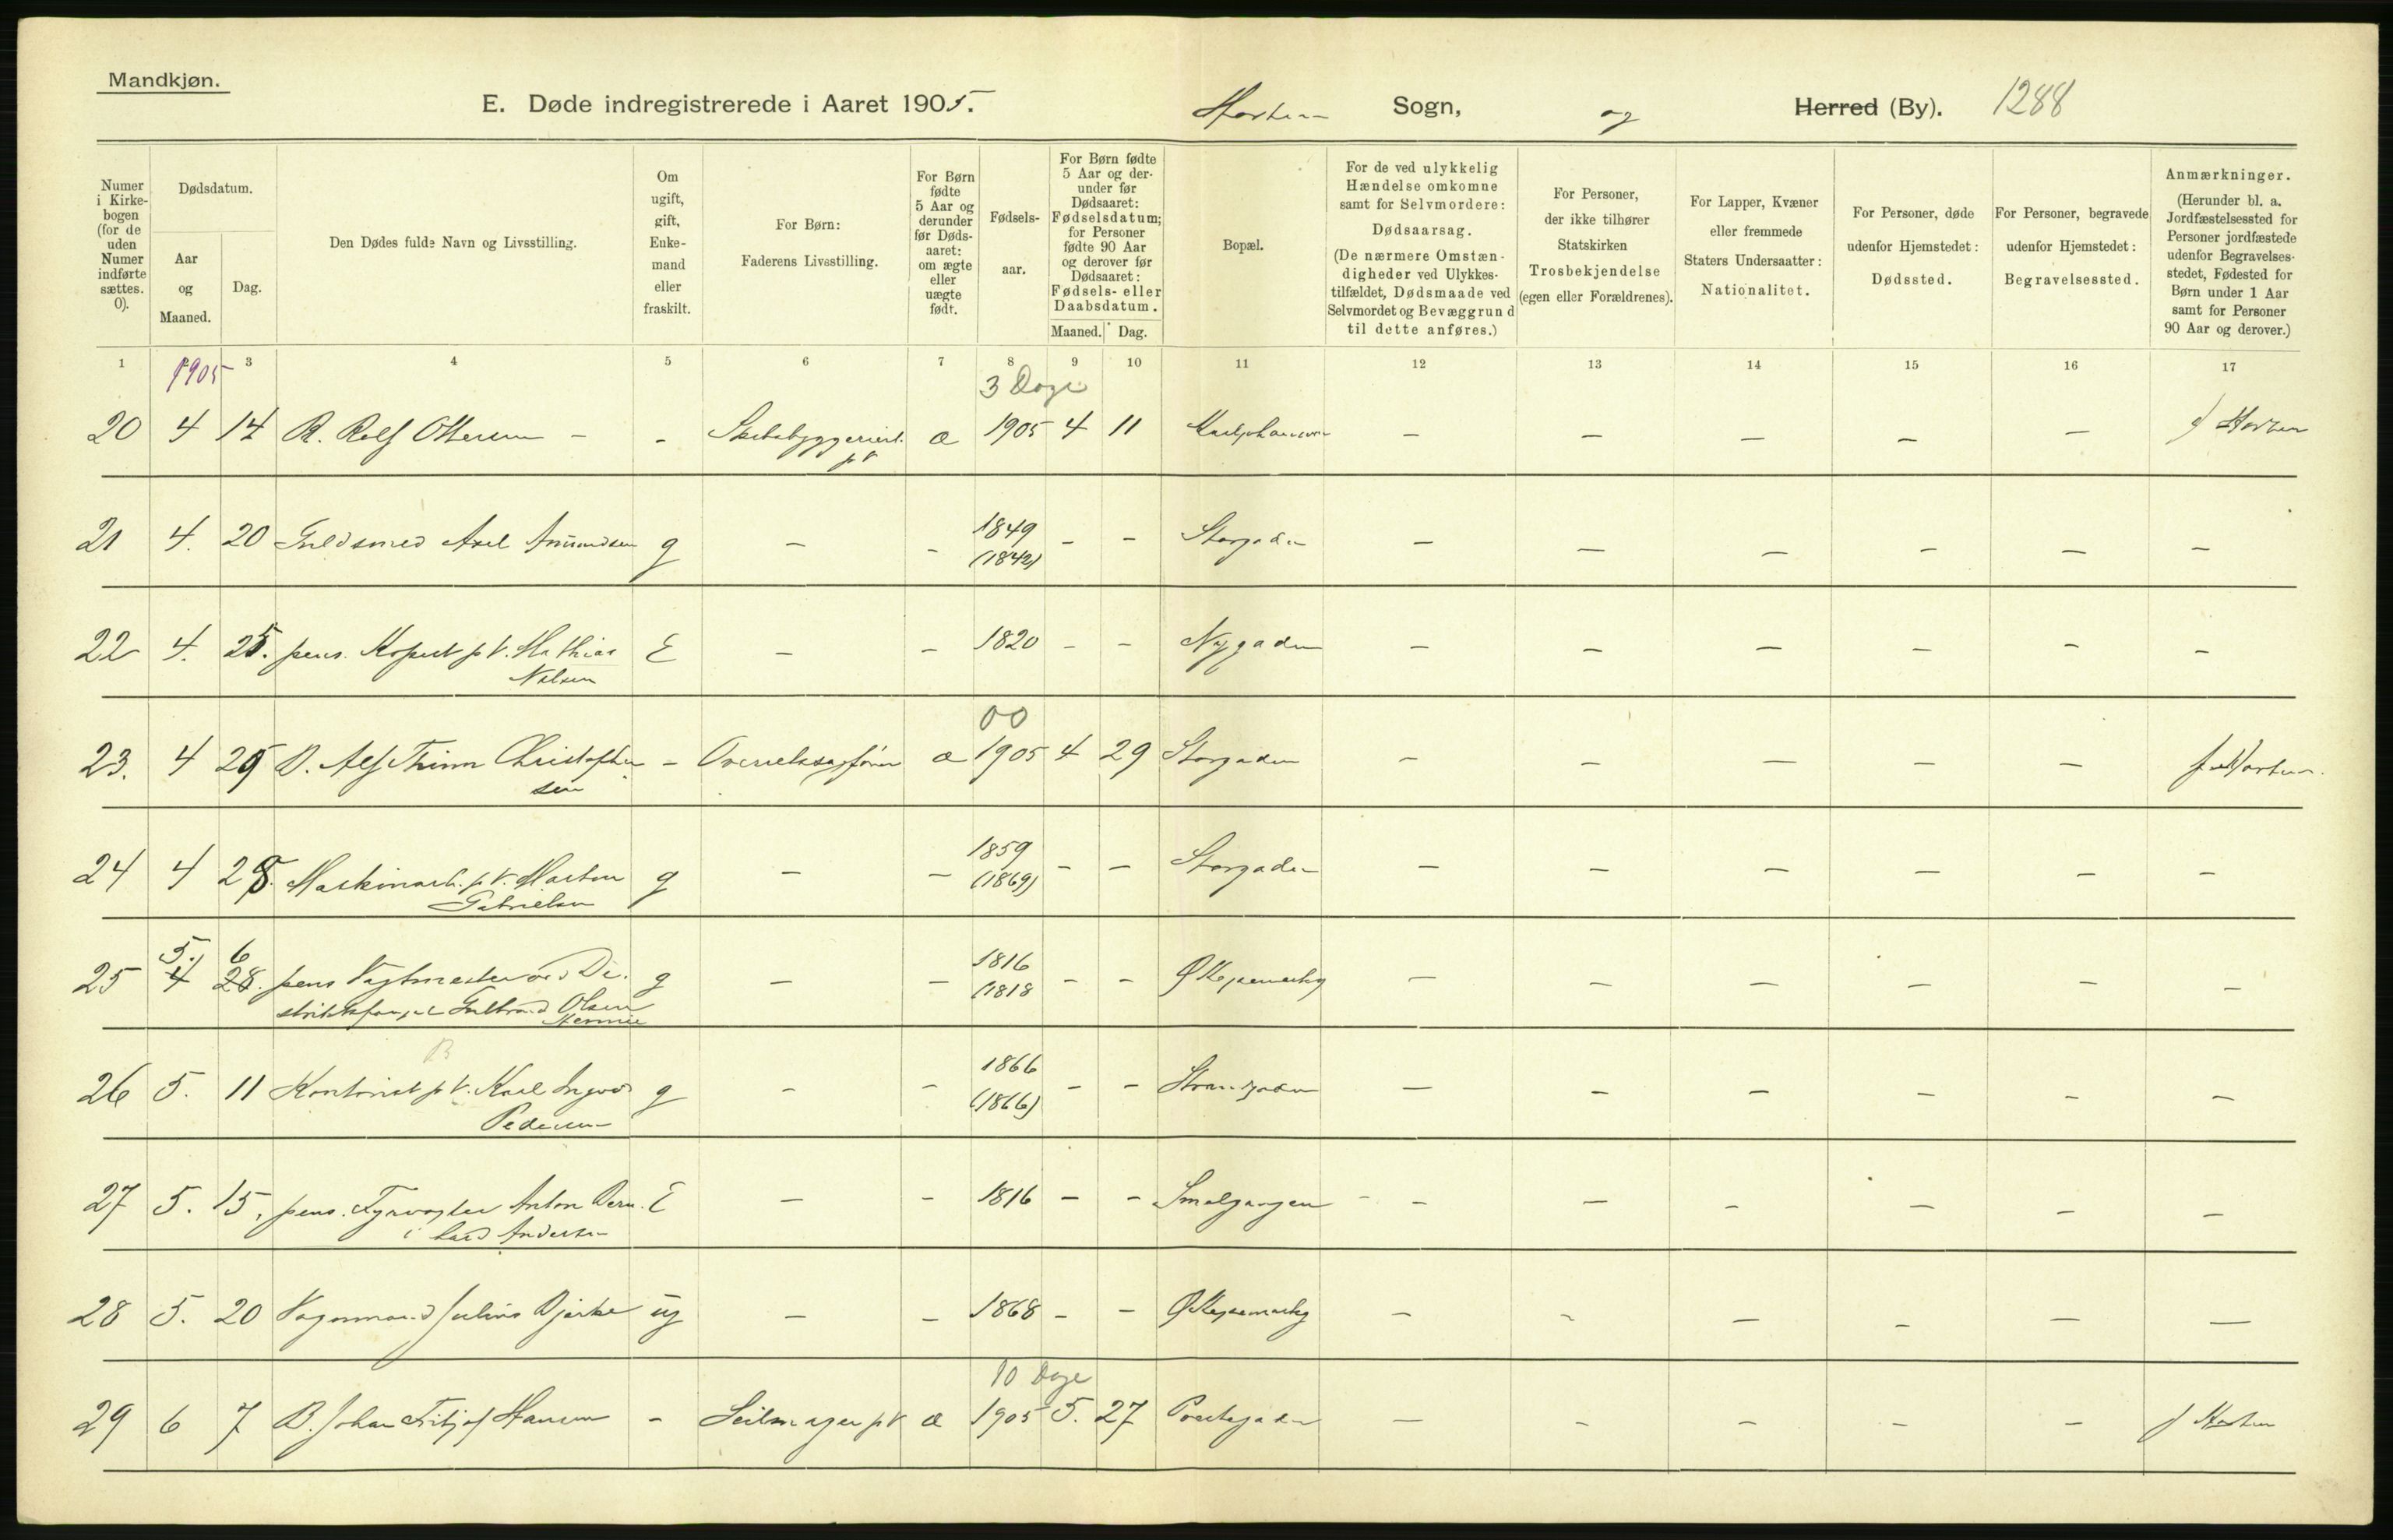 Mandkjøn.
E. Døde indregistrerede i Aaret 1905. Horten Sogn, og Herred (By). 1288
Numer i Kirke-bogen (for de uden Numer indførte sættes. 0).
Dødsdatum.
Aar og Maaned.
Dag.
Den Dødes fulde Navn og Livsstilling.
Om ugift, gift, Enke-mand eller fraskilt.
For Børn: Faderens Livsstilling.
For Børn fødte 5 Aar og derunder før Døds-aaret: om ægte eller uægte født.
Fødsels-aar.
For Børn fødte 5 Aar og der-under før Dødsaaret: Fødselsdatum; for Personer fødte 90 Aar og derover før Dødsaaret: Fødsels- eller Daabsdatum.
Maaned. Dag.
Bopæl.
For de ved ulykkelig Hændelse omkomne samt for Selvmordere: Dødsaarsag. (De nærmere Omstæn-digheder ved Ulykkes-tilfældet, Dødsmaade ved Selvmordet og Bevæggrund til dette anføres.)
For Personer, der ikke tilhører Statskirken Trosbekjendelse (egen eller Forældrenes).
For Lapper, Kvæner eller fremmede Staters Undersaatter: Nationalitet.
For Personer, døde udenfor Hjemstedet: Dødssted.
For Personer, begravede udenfor Hjemstedet: Begravelsessted.
Anmærkninger. (Herunder bl. a. Jordfæstelsessted for Personer jordfæstede udenfor Begravelses-stedet, Fødested for Børn under 1 Aar samt for Personer 90 Aar og derover.)
1 3 4 5 6 7 8 9 10 11 12 13 14 15 16 17
1905 3 Dage
20 4 14 B. Rolf Ottersen - - æ 1905 4 11 - - - - - f Horten
p V
21 4. 20 Guldsmed Axel Amundsen g - - 1849 - - Storgaden - - - - - -
(1842)
22 4. 25. pens. p V. Mathias E - - 1820 - - Nygaden - - - - - -
Nilsen
00
23. 4 29 B. Alf Trinn Christoffer - Overretssagfører æ 1905 4 29 Storgaden - - - - - f Horten
sen
24 4 28. Maskinarb. p V. Morten g - - 1859 - - Storgaden - - - - - -
Gabrielsen (1869)
5. 6
25 4 28. pens Vagtmester ved Di- g - - 1816 - - - - - - - -
striktsfængsel Gulbrand Olsen (1818
26 5. 11 Kontorist p V. Karl Ingvald g - - 1866 - - Strandgaden - - - - - -
Pedersen (1866)
27 5. 15. pens. Fyrvogter Anton Bern- E - - 1816 - - Smalgangen - - - - - -
hard Andersen
28 5. 20 Vognmand Julius Bjerke ug - - 1868 - - - - - - - -
10 Dage
29 6 7 B. Johan Fritjof Hansen - Seilmager p V æ 1905 5. 27 - - - - - f Horten